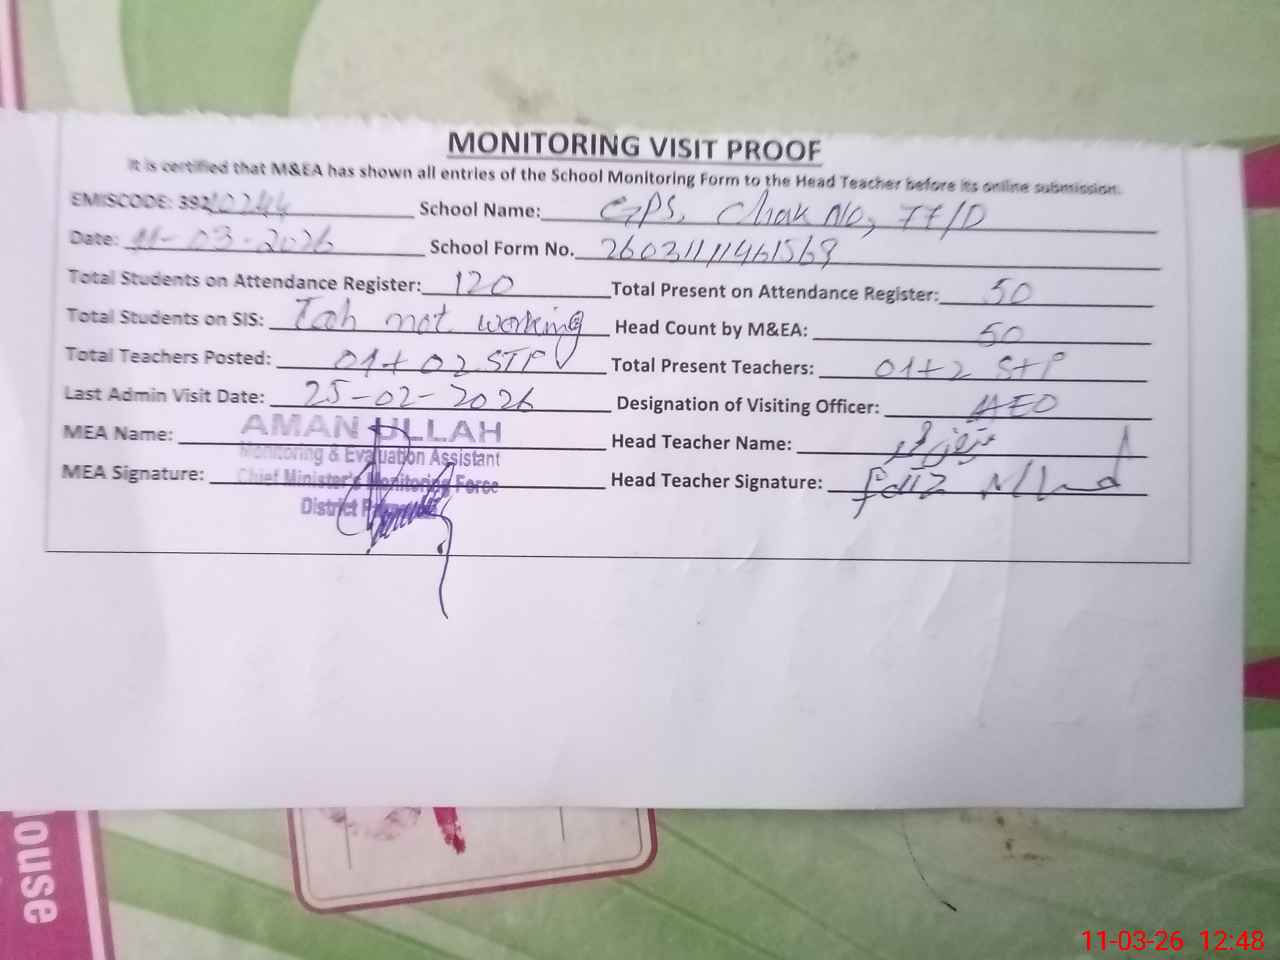 MONITORING VISIT PROOF
It is certified that M&EA has shown all entries of the School Monitoring Form to the Head Teacher before its online submission.
EMISCODE: 39210244 School Name: GPS, Chak No, 77/D
Date: 11-03-2026 School Form No. 26031111461569
Total Students on Attendance Register: 120 Total Present on Attendance Register: 50
Total Students on SIS: Tab not working Head Count by M&EA: 50
Total Teachers Posted: 01+02 STP Total Present Teachers: 01+2 STP
Last Admin Visit Date: 25-02-2026 Designation of Visiting Officer: AEO
MEA Name: AMAN ULLAH Head Teacher Name:
Monitoring & Evaluation Assistant
MEA Signature: Chief Minister's Monitoring Force Head Teacher Signature:
District
ouse
11-03-26 12:48